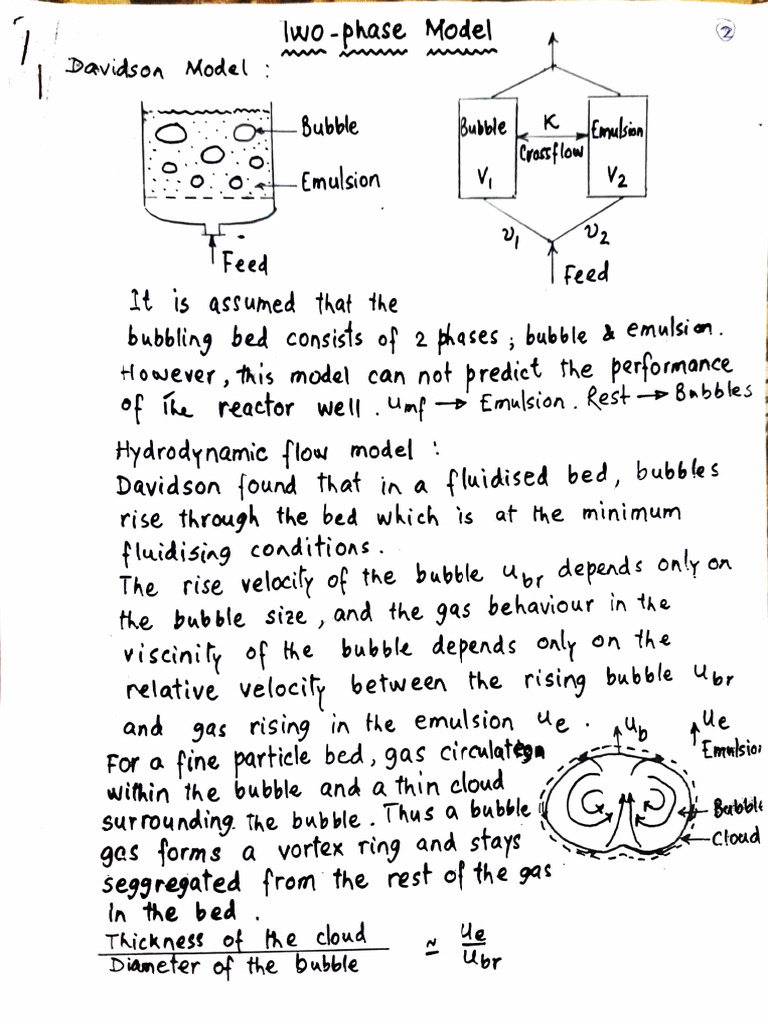 Two-phase Model
2
Davidson Model :
Bubble
Emulsion
Feed
Bubble
V1
K
Crossflow
Emulsion
V2
v1
v2
Feed
It is assumed that the
bubbling bed consists of 2 phases ; bubble & emulsion.
However, this model can not predict the performance
of the reactor well. umf → Emulsion. Rest → Bubbles
Hydrodynamic flow model :
Davidson found that in a fluidised bed, bubbles
rise through the bed which is at the minimum
fluidising conditions.
The rise velocity of the bubble ubr depends only on
the bubble size, and the gas behaviour in the
viscinity of the bubble depends only on the
relative velocity between the rising bubble ubr
and gas rising in the emulsion ue.
For a fine particle bed, gas circulates
within the bubble and a thin cloud
surrounding the bubble. Thus a bubble
gas forms a vortex ring and stays
seggregated from the rest of the gas
in the bed.
ub
ue
Emulsion
Bubble
Cloud
Thickness of the cloud / Diameter of the bubble ≃ ue / ubr